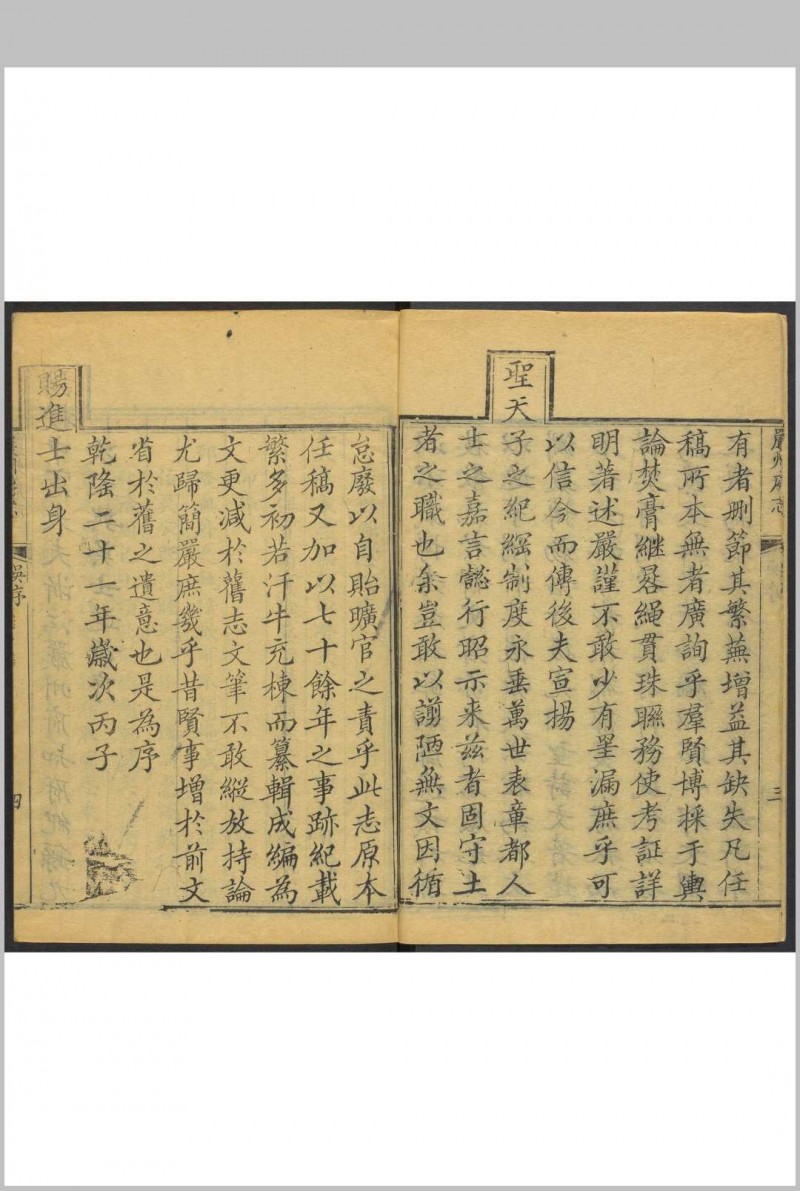 嚴州府志
三
有者刪節其繁蕪增益其缺失凡任
稿所本無者廣詢乎羣賢博採于輿
論焚膏繼晷繩貫珠聯務使考証詳
明著述嚴謹不敢少有罣漏庶乎可
以信今而傳後夫宣揚
聖天子之紀綱制度永垂萬世表章都人
士之嘉言懿行昭示来兹者固守土
者之職也余豈敢以謭陋無文因循
怠廢以自貽曠官之責乎此志原本
任稿又加以七十餘年之事跡紀載
繁多初若汗牛充棟而纂輯成編為
文更減於舊志文筆不敢縱放持論
尤歸簡嚴庶幾乎昔賢事增於前文
省於舊之遺意也是為序
乾隆二十一年歲次丙子
賜進士出身
吳序
四